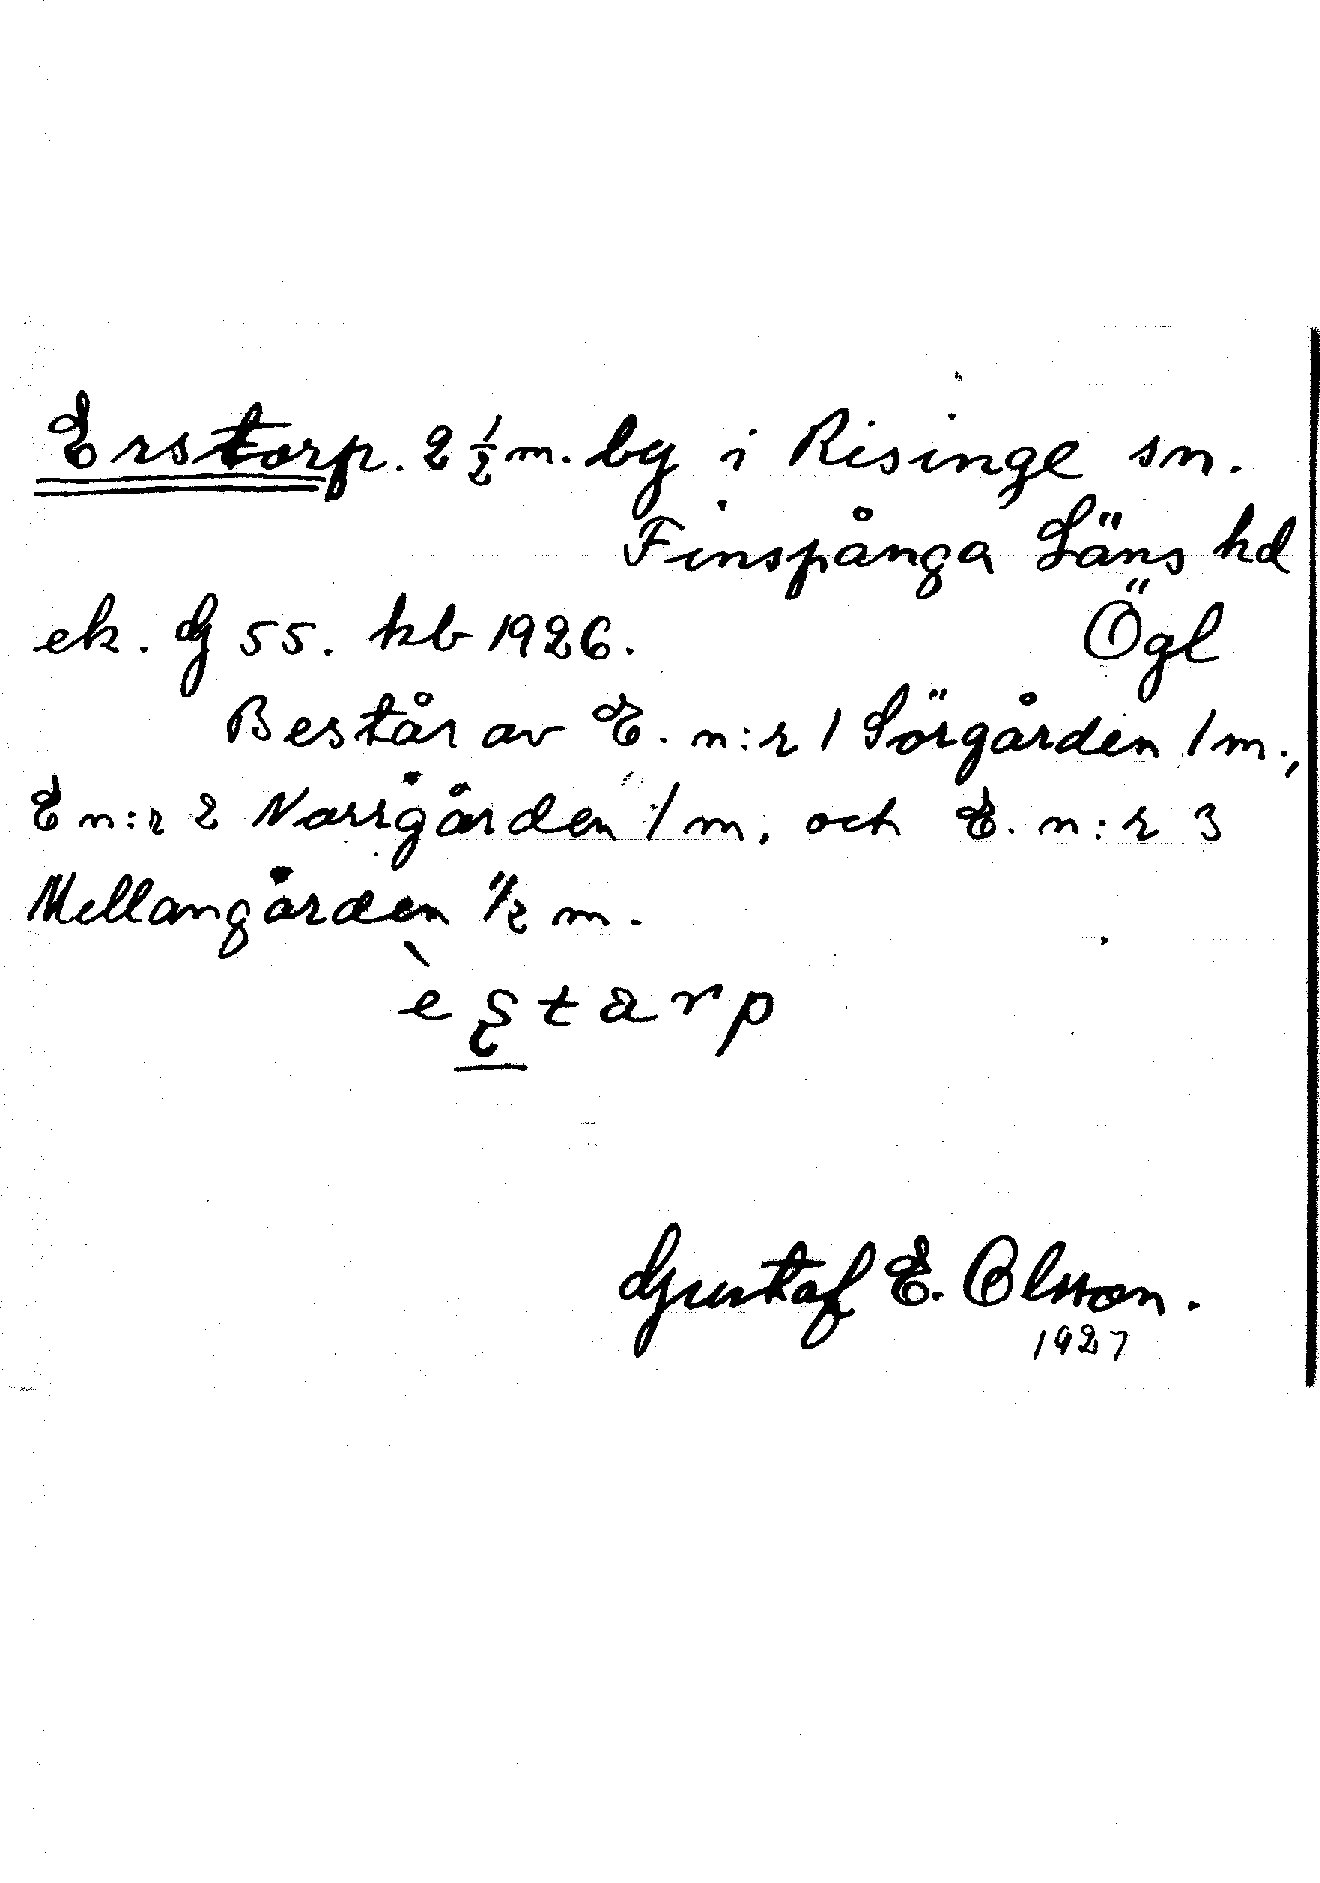 Erstorp. 2 1/2 m. by i Risinge sn.
Finspånga Läns hd
ek. G 55. kb 1926. Ögl
Består av E. n:r 1 Sörgården 1 m.,
E n:r 2 Norrgården 1 m, och E. n:r 3
Mellangården 1/2 m.
è s̨ t a r p
Gustaf E. Olsson.
1927